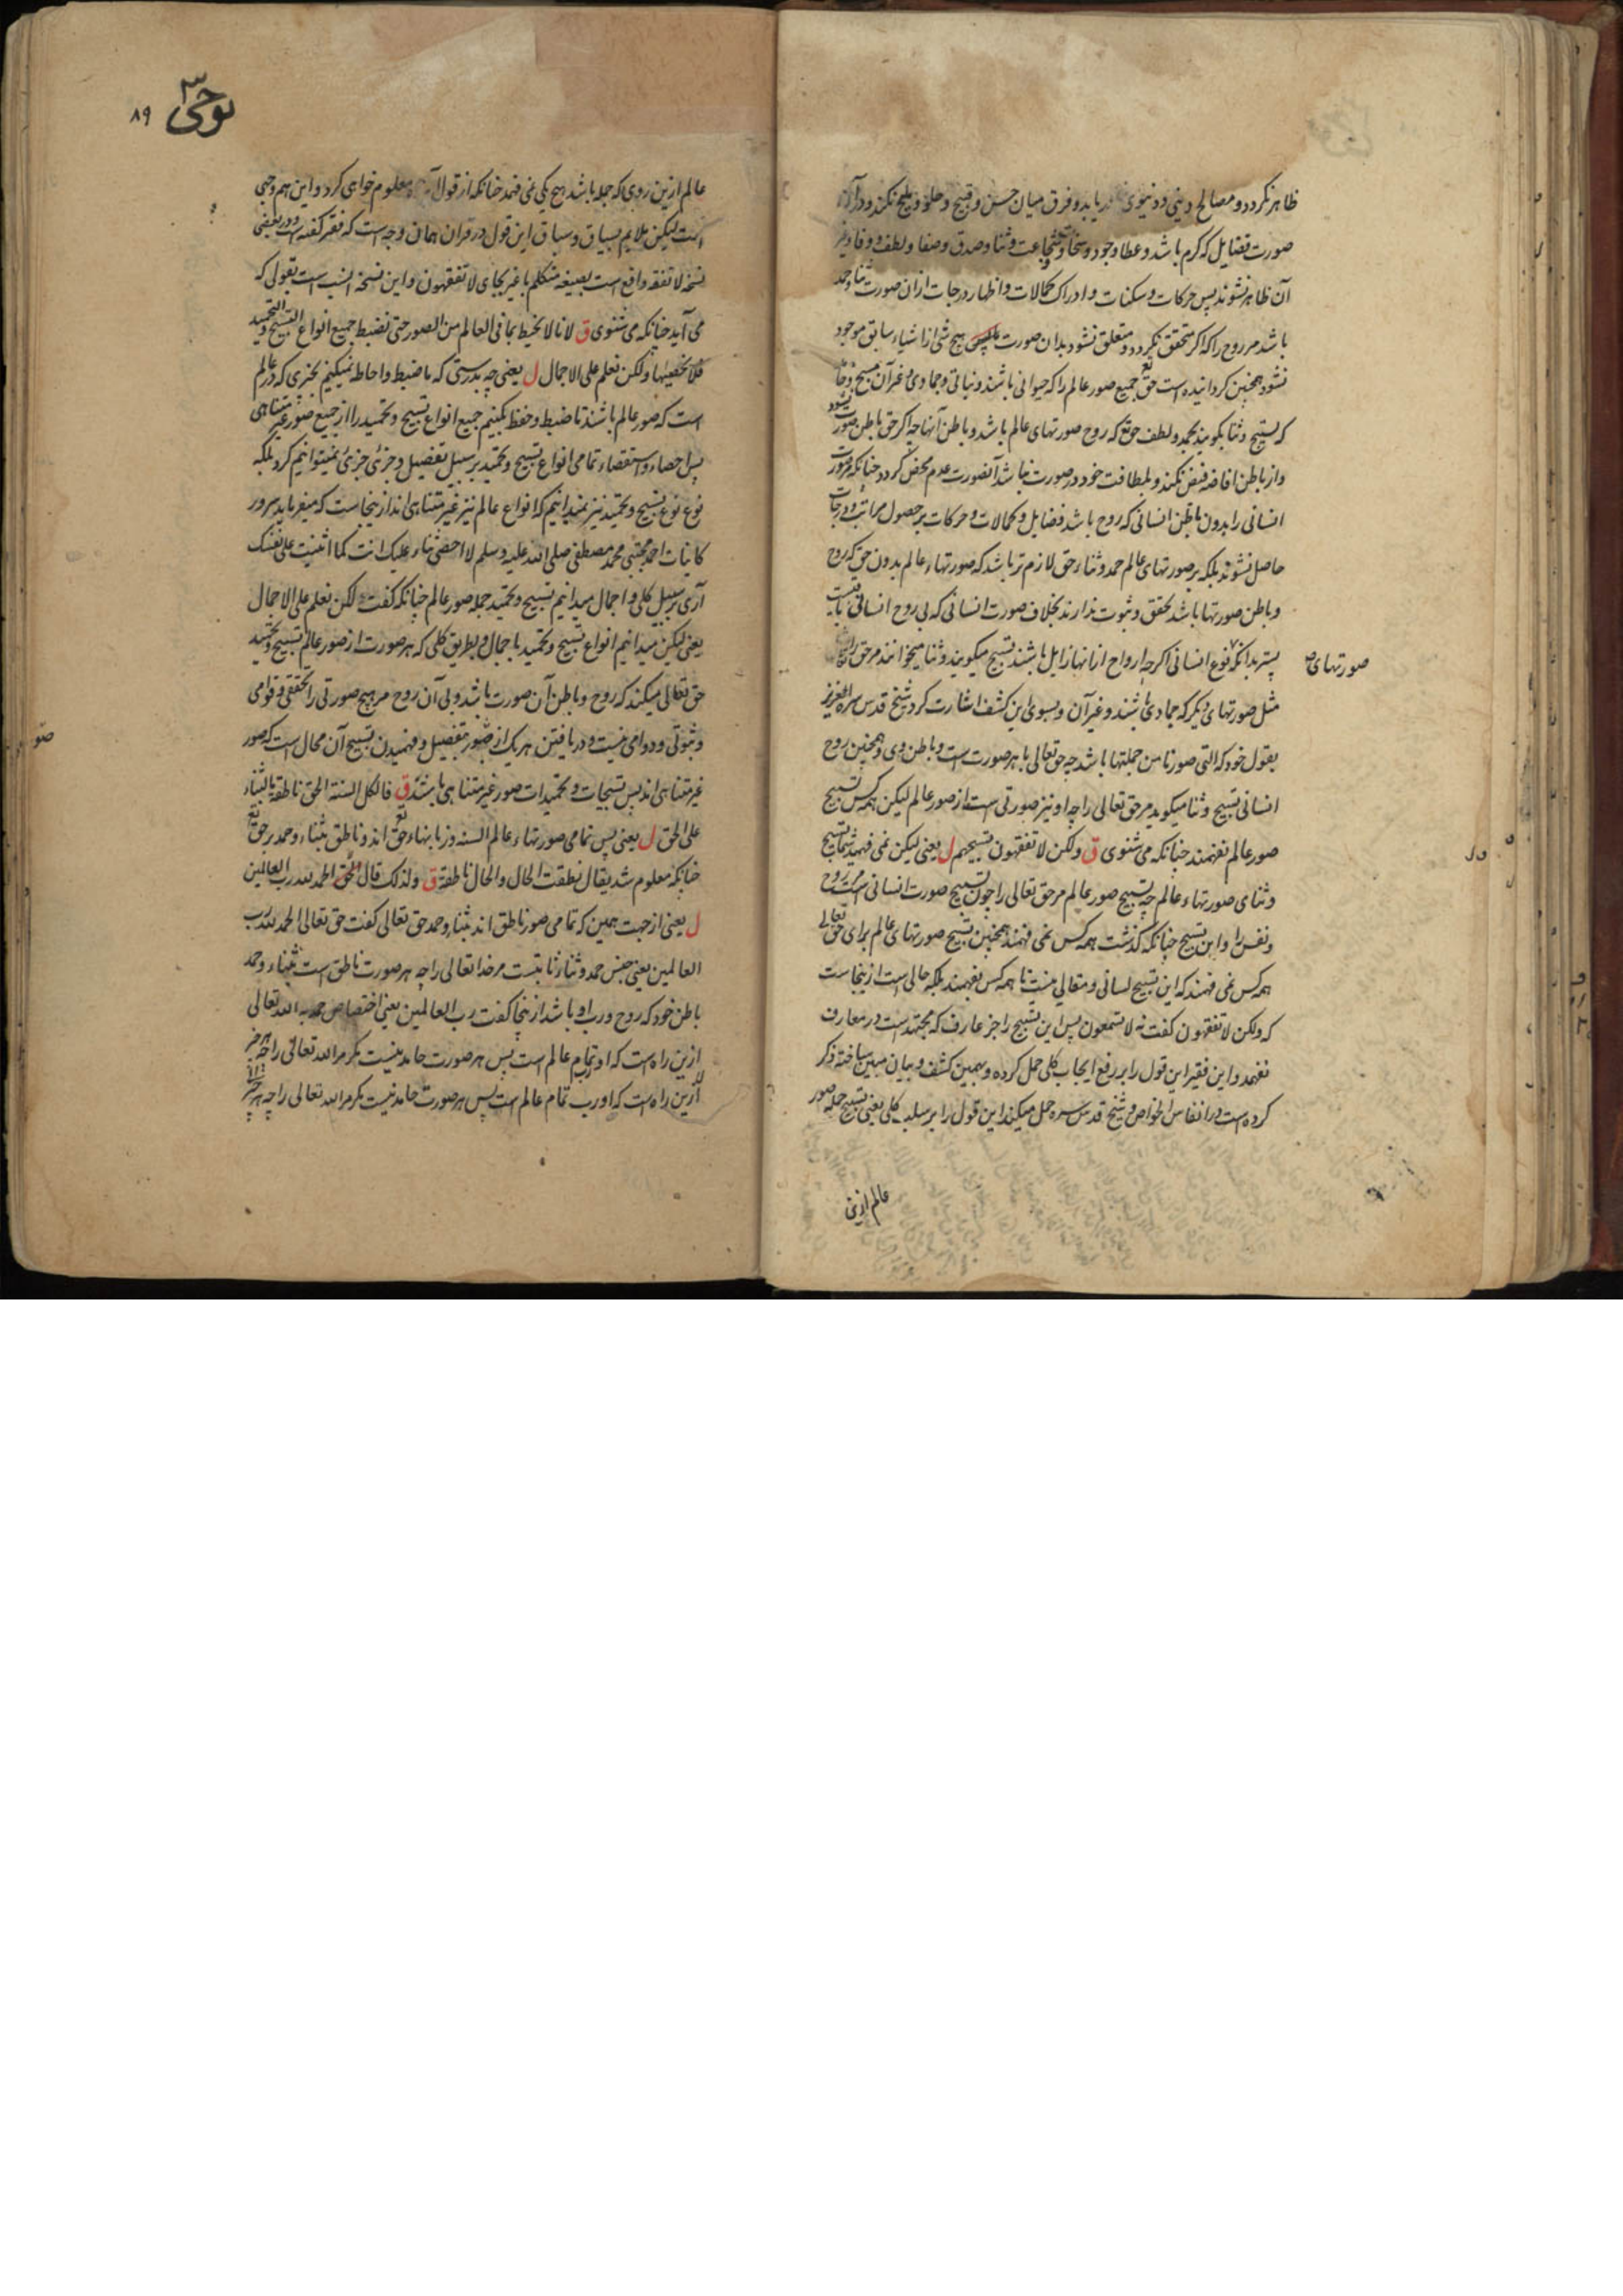 ظاهر نکردد و مصالح دینی و دنیوی دریابد و فرق میان حسن و قبیح و حلو و ملیح نکند و در آن
صورت فضایل که کرم باشد و عطا وجود و سخاوت و شجاعت و ثنا و صدق و صفا و لطف و وفا و غیر
آن ظاهر نشوند پس حرکات و سکنات و ادراک کمالات و اظهار درجات ازان صورت ثنا و حمد
باشد مر روح را که اکر متحقق نکردد و متعلق نشود بدان صورت هیچ شئ از اشیاء سابق موجود
نشود همچنین کردانیده است حق تع جمیع صور عالم را که حیوانی باشند و نباتی و جمادی و غیر آن مسبح
که تسبیح و ثنا بکویند بحمد و لطف حق تع که روح صورتهای عالم باشد و باطن آنها چه اکر حق باطن صورت نشود
و از باطن افاضه فیض نکند و بلطافت خود در صورت نباشد آنصورت عدم محض کردد چنانکه صورت
انسانی را بدون باطن انسانی که روح باشد فضایل و کمالات و حرکات بر حصول مراتب و درجات
حاصل نشوند بلکه بر صورتهای عالم حمد و ثناء حق لازم تر باشد که صورتهاء عالم بدون حق که روح
و باطن صورتها باشد تحقق و ثبوت ندارند بخلاف صورت انسانی که بی روح انسانی
پستر بدانکه نوع انسانی اکرچه ارواح از انها زایل باشند تسبیح میکویند و ثنا میخوانند مر حق را
صورتهای
مثل صورتهای دیکر که جمادی باشند و غیر آن و بسوی این کشف اشارت کرد شیخ قدس سره العزیز
بقول خود که التی صورنا من جملتها باشد چه حق تعالی با هر صورت است و باطن وی و همچنین روح
انسانی تسبیح و ثنا میکوید مر حق تعالی را چه او نیز صورتی است از صور عالم لیکن همه کس تسبیح
صور عالم نفهمند چنانکه می شنوی ق ولکن لا تفقهون تسبیحهم ل یعنی لیکن نمی فهمید شما تسبیح
و ثنای صورتهاء عالم چه تسبیح صور عالم مر حق تعالی را چون تسبیح صورت انسانی است مر روح
و نفس را و این تسبیح چنانکه کذشت همه کس نمی فهمند همچنین تسبیح صورتهای عالم برای حق تعالی
همه کس نمی فهمند که این تسبیح لسانی و مقالی نیست تا همه کس بفهمند بلکه حالی است ازینجاست
که ولکن لا تفقهون کفت نه لا تسمعون پس این تسبیح را جز عارف که مجتهد است در معارف
نفهمد و این فقیر این قول را بر رفع ایجاب کلی حمل کرده و بهمین کشف و بیان مبین ساخته ذکر
کرده است در انفاس الخواص و شیخ قدس سره حمل میکند این قول را بر سلب کلی یعنی تسبیح جمله صور
عالم ازین
۸۹
عالم ازین روی که جمله باشد هیچ یکی نمی فهمد چنانکه از قول معلوم خواهی کرد و این هم وجهی
است لیکن ملایم بسیاق و سباق این قول در قران همان وجه است که فقیر کفته است و در بعضی
نسخه لا نفقه واقع است بصیغه متکلم با غیر بجای لا تفقهون و این نسخه انسب است بقولی که
می آید چنانکه می شنوی ق لانا لا نحیط بما فی العالم من الصور حتی نضبط جمیع انواع التسبیح و التحمید
فلا نحصیها ولکن نعلم علی الاجمال ل یعنی چه بدرستی که ما ضبط و احاطه نمیکنیم بچیزی که در عالم
است که صور عالم باشند تا ضبط و حفظ بکنیم جمیع انواع تسبیح و تحمید را از جمیع صور غیر متناهی
پس احصاء و استقصاء تمامی انواع تسبیح و تحمید بر سبیل تفصیل و جزئی جزئی نمیتوانیم کرد بلکه
نوع نوع تسبیح و تحمید نیز نمیدانیم که انواع عالم نیز غیر متناهی اند ازینجاست که میفرماید سرور
کاینات احمد مجتبی محمد مصطفی صلی الله علیه و سلم لا احصی ثناء علیک انت کما اثنیت علی نفسک
آری بر سبیل کلی و اجمال میدانیم تسبیح و تحمید جمله صور عالم چنانکه کفت ولکن نعلم علی الاجمال
یعنی لیکن میدانیم انواع تسبیح و تحمید باجمال و بطریق کلی که هر صورت از صور عالم تسبیح و تحمید
حق تعالی میکند که روح و باطن آن صورت باشد و بی آن روح مر هیچ صورتی را تحقق و قوامی
و ثبوتی و دوامی نیست و دریافتن هر یک از صور بتفصیل و فهمیدن تسبیح آن محال است که صور
صو
غیر متناهی اند پس تسبیحات و تحمیدات صور غیر متناهی باشند ق فالکل السنة الحق ناطقة بالثناء
علی الحق ل یعنی پس تمامی صورتهاء عالم السنه و زبانهاء حق تع اند و ناطق بثناء و حمد بر حق تع
چنانکه معلوم شد یقال نطقت الحال و الحال ناطقة ق ولذلک قال الحق الحمد لله رب العالمین
ل یعنی از جهت همین که تمامی صور ناطق اند بثناء و حمد حق تعالی کفت حق تعالی الحمد لله رب
العالمین یعنی جنس حمد و ثنا ثابتست مر خدا تعالی را چه هر صورت ناطق است بثناء و حمد
باطن خود که روح و رب او باشد ازینجا کفت رب العالمین یعنی اختصاص حمد به الله تعالی
ازین راه است که او رب تمام عالم است پس هر صورت حامد نیست مکر مر الله تعالی را چه هر
ازین راه است که او رب تمام عالم است پس هر صورت حامد نیست مکر مر الله تعالی را چه هر